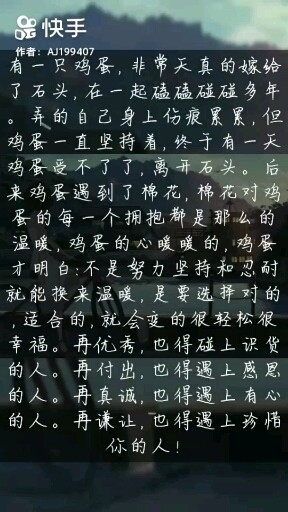 快手
作者：AJ199407
有一只鸡蛋，非常天真的嫁给
了石头，在一起磕磕碰碰多年
。弄的自己身上伤痕累累，但
鸡蛋一直坚持着，终于有一天
鸡蛋受不了了，离开石头。后
来鸡蛋遇到了棉花，棉花对鸡
蛋的每一个拥抱都是那么的
温暖，鸡蛋的心暖暖的，鸡蛋
才明白：不是努力坚持和忍耐
就能换来温暖，是要选择对的
，适合的，就会变的很轻松很
幸福。再优秀，也得碰上识货
的人。再付出，也得遇上感恩
的人。再真诚，也得遇上有心
的人。再谦让，也得遇上珍惜
你的人！